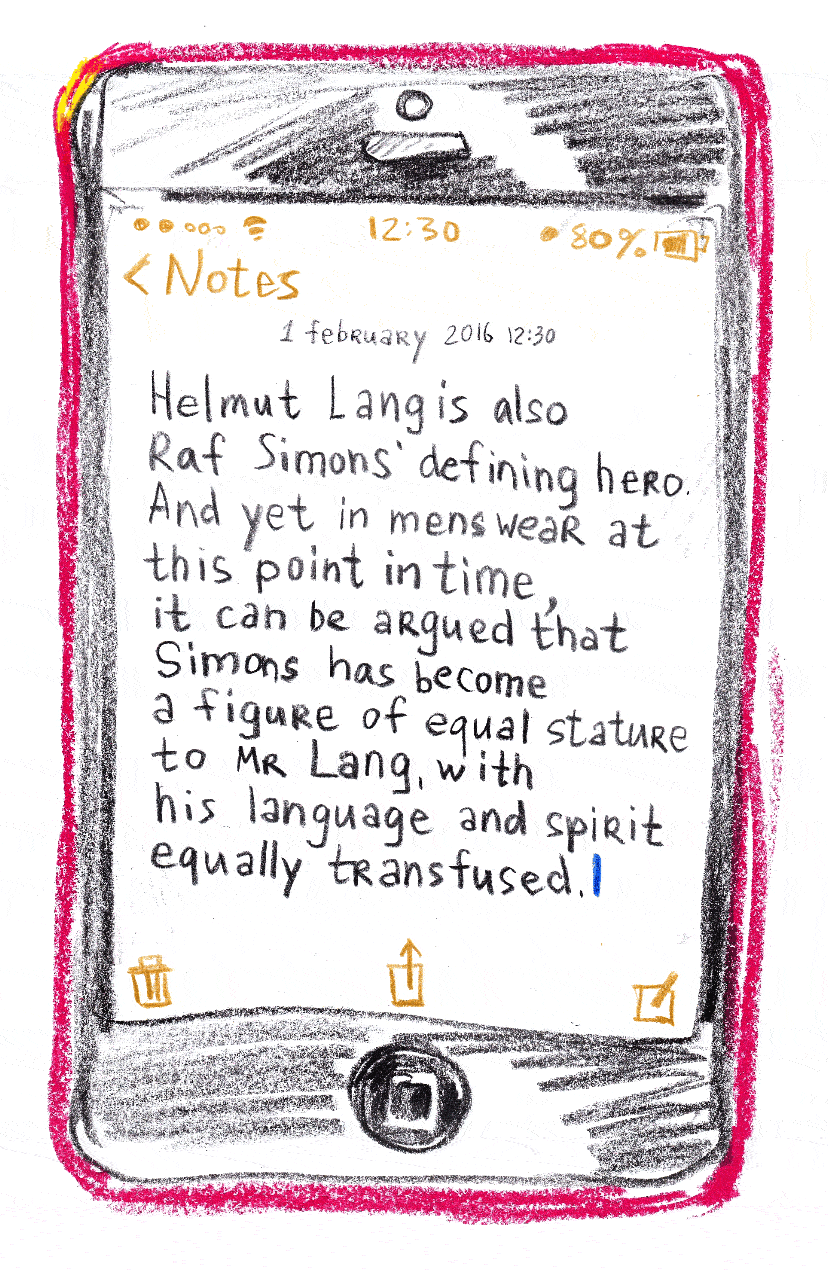 12:30 80%
< Notes
1 february 2016 12:30
Helmut Lang is also
Raf Simons' defining hero.
And yet in menswear at
this point in time,
it can be argued that
Simons has become
a figure of equal stature
to Mr Lang, with
his language and spirit
equally transfused.